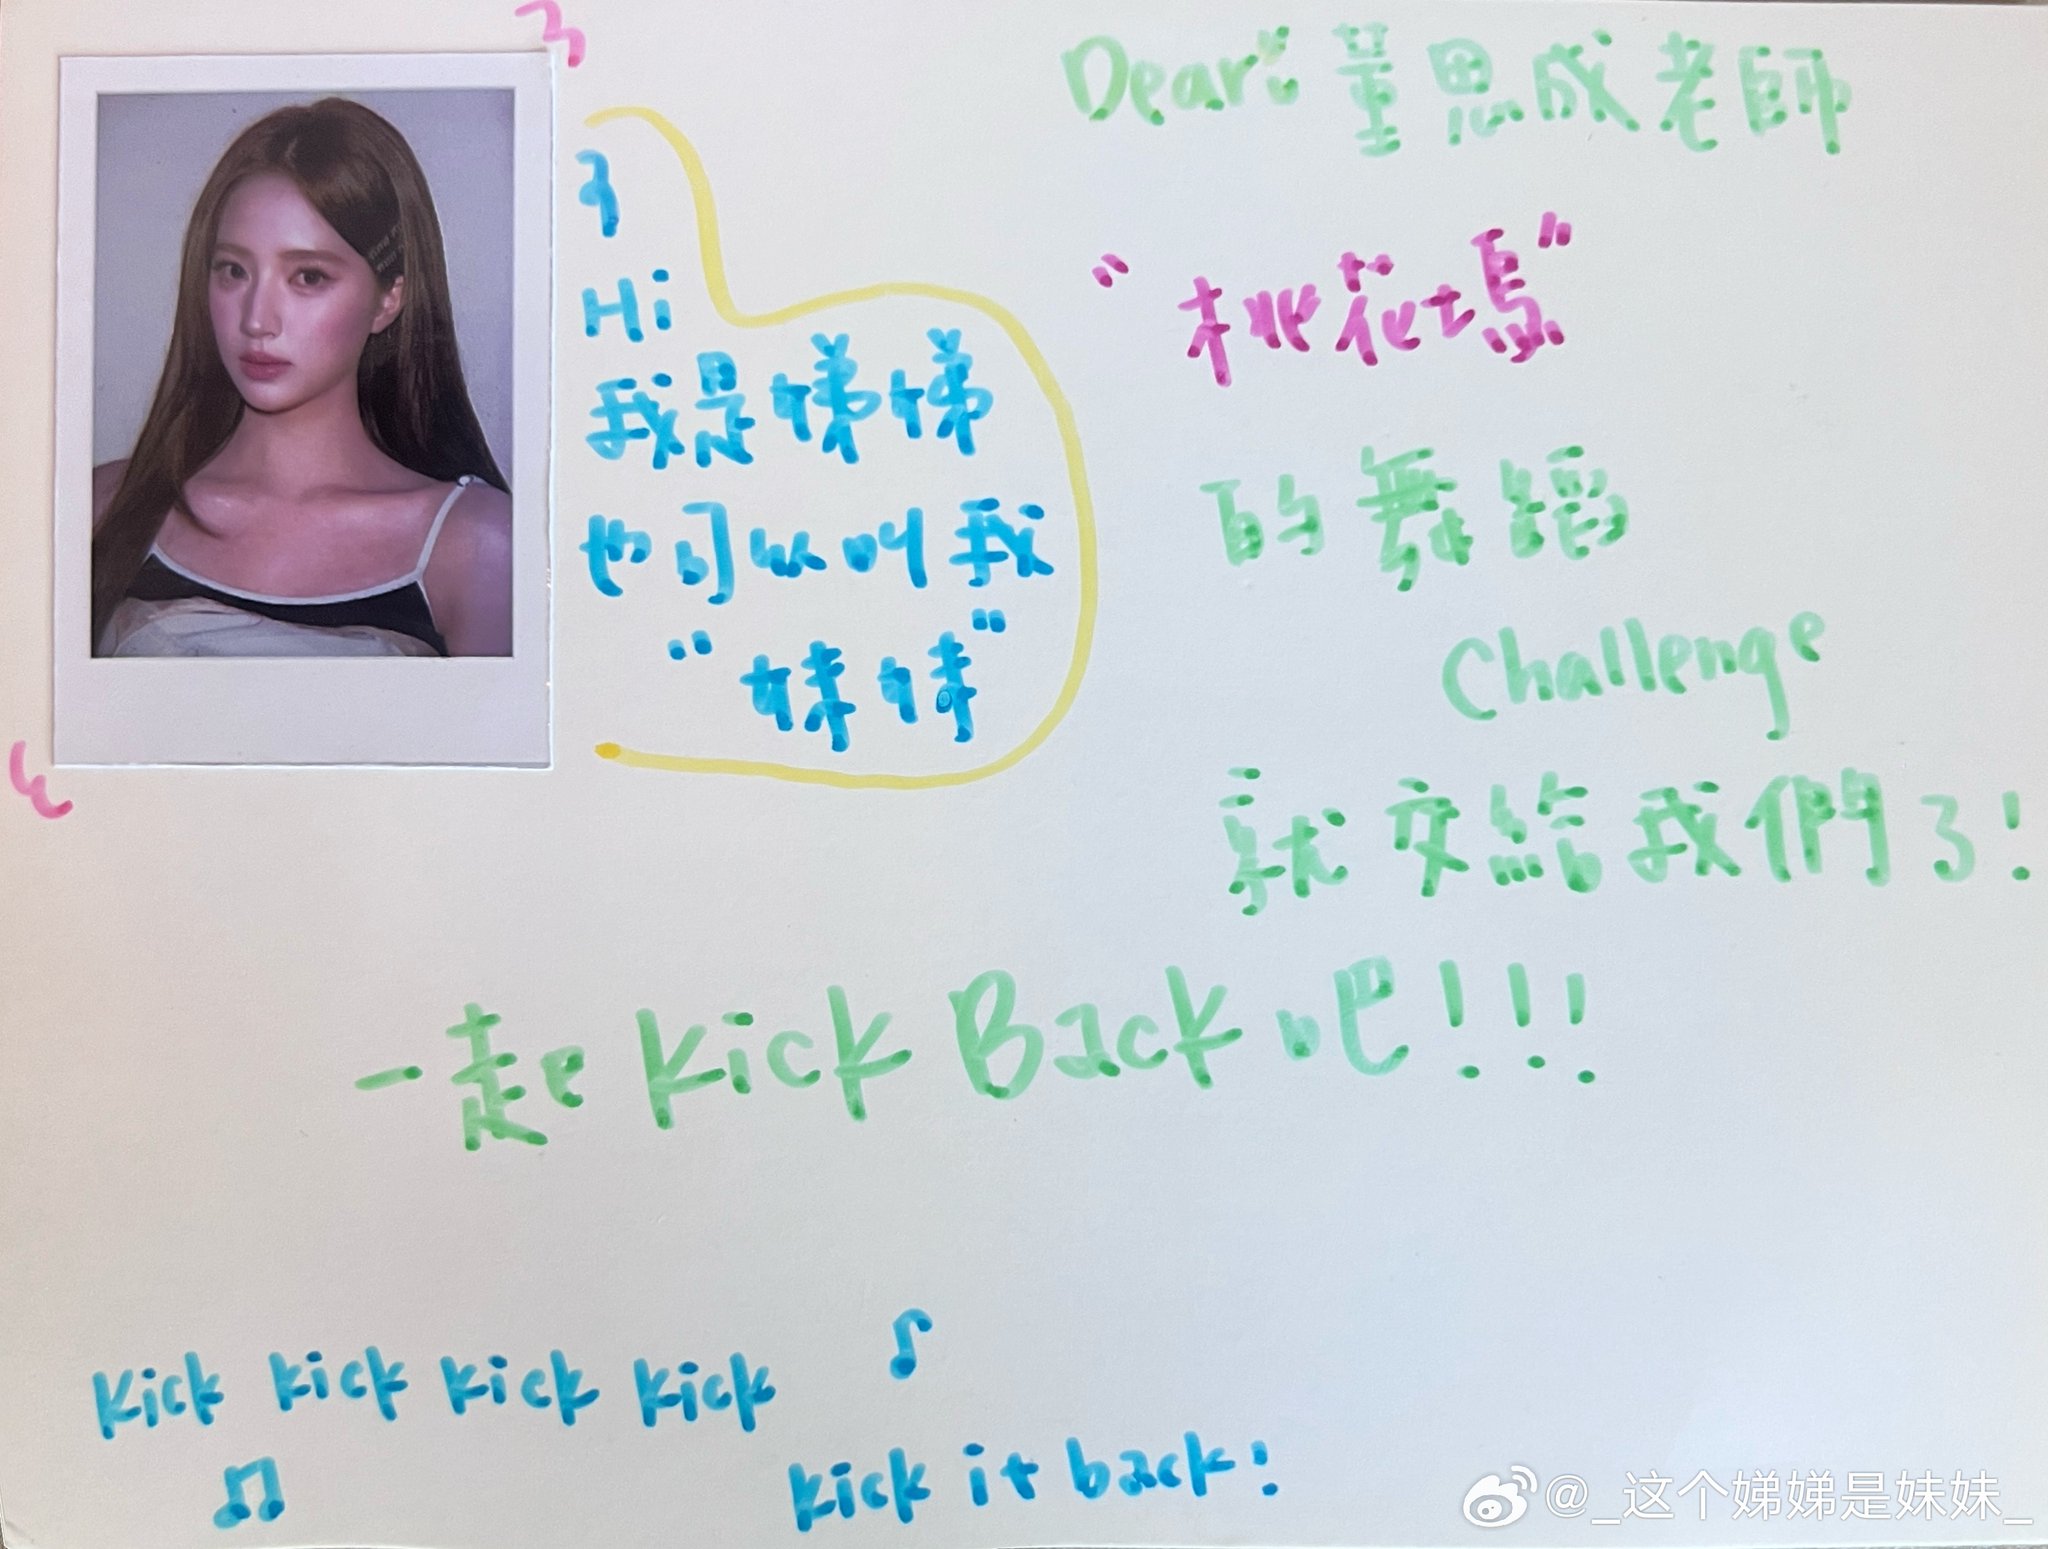 Hi
我是娣娣
也可以叫我
"妹妹"
Dear: 董思成老師
"桃花塢"
的舞蹈
Challenge
就交給我們了!
一起 Kick Back 吧!!!
Kick kick kick kick
kick it back!
@_这个娣娣是妹妹_